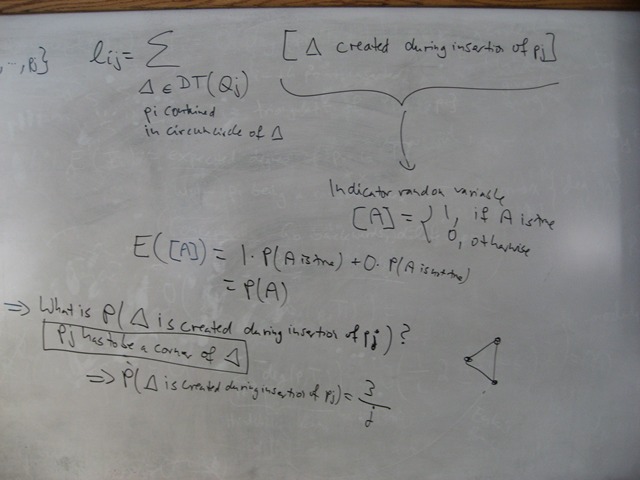 ..., pj}
lij = ∑ [Δ created during insertion of pj]
Δ ∈ DT(Qj)
pi contained
in circumcircle of Δ
Indicator random variable
[A] = { 1, if A is true
0, otherwise
E([A]) = 1· P(A is true) + 0· P(A is not true)
= P(A)
⇒ What is P(Δ is created during insertion of pj)?
pj has to be a corner of Δ
⇒ P(Δ is created during insertion of pj) = 3/j